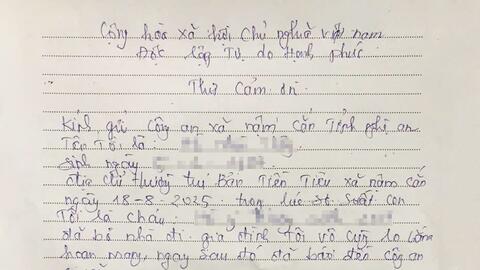 Cộng hòa xã hội Chủ nghĩa việt nam
Độc lập Tự do Hạnh phúc
Thư Cảm ơn
Kính gửi Công an xã nậm cắn Tỉnh nghệ an
Tên Tôi là :
Sinh ngày
địa chỉ thường trú Bản Tiền Tiêu xã nậm cắn
ngày 18-8-2025 trong lúc con
Tôi là cháu :
đã bỏ nhà đi. gia đình tôi vô cùng lo lắng
hoan mang, ngay sau đó đã báo đến công an